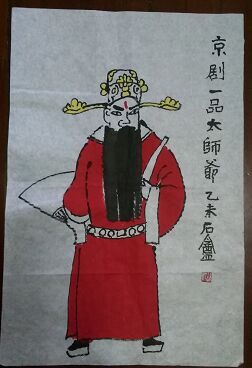 京剧一品太師爺 乙未石